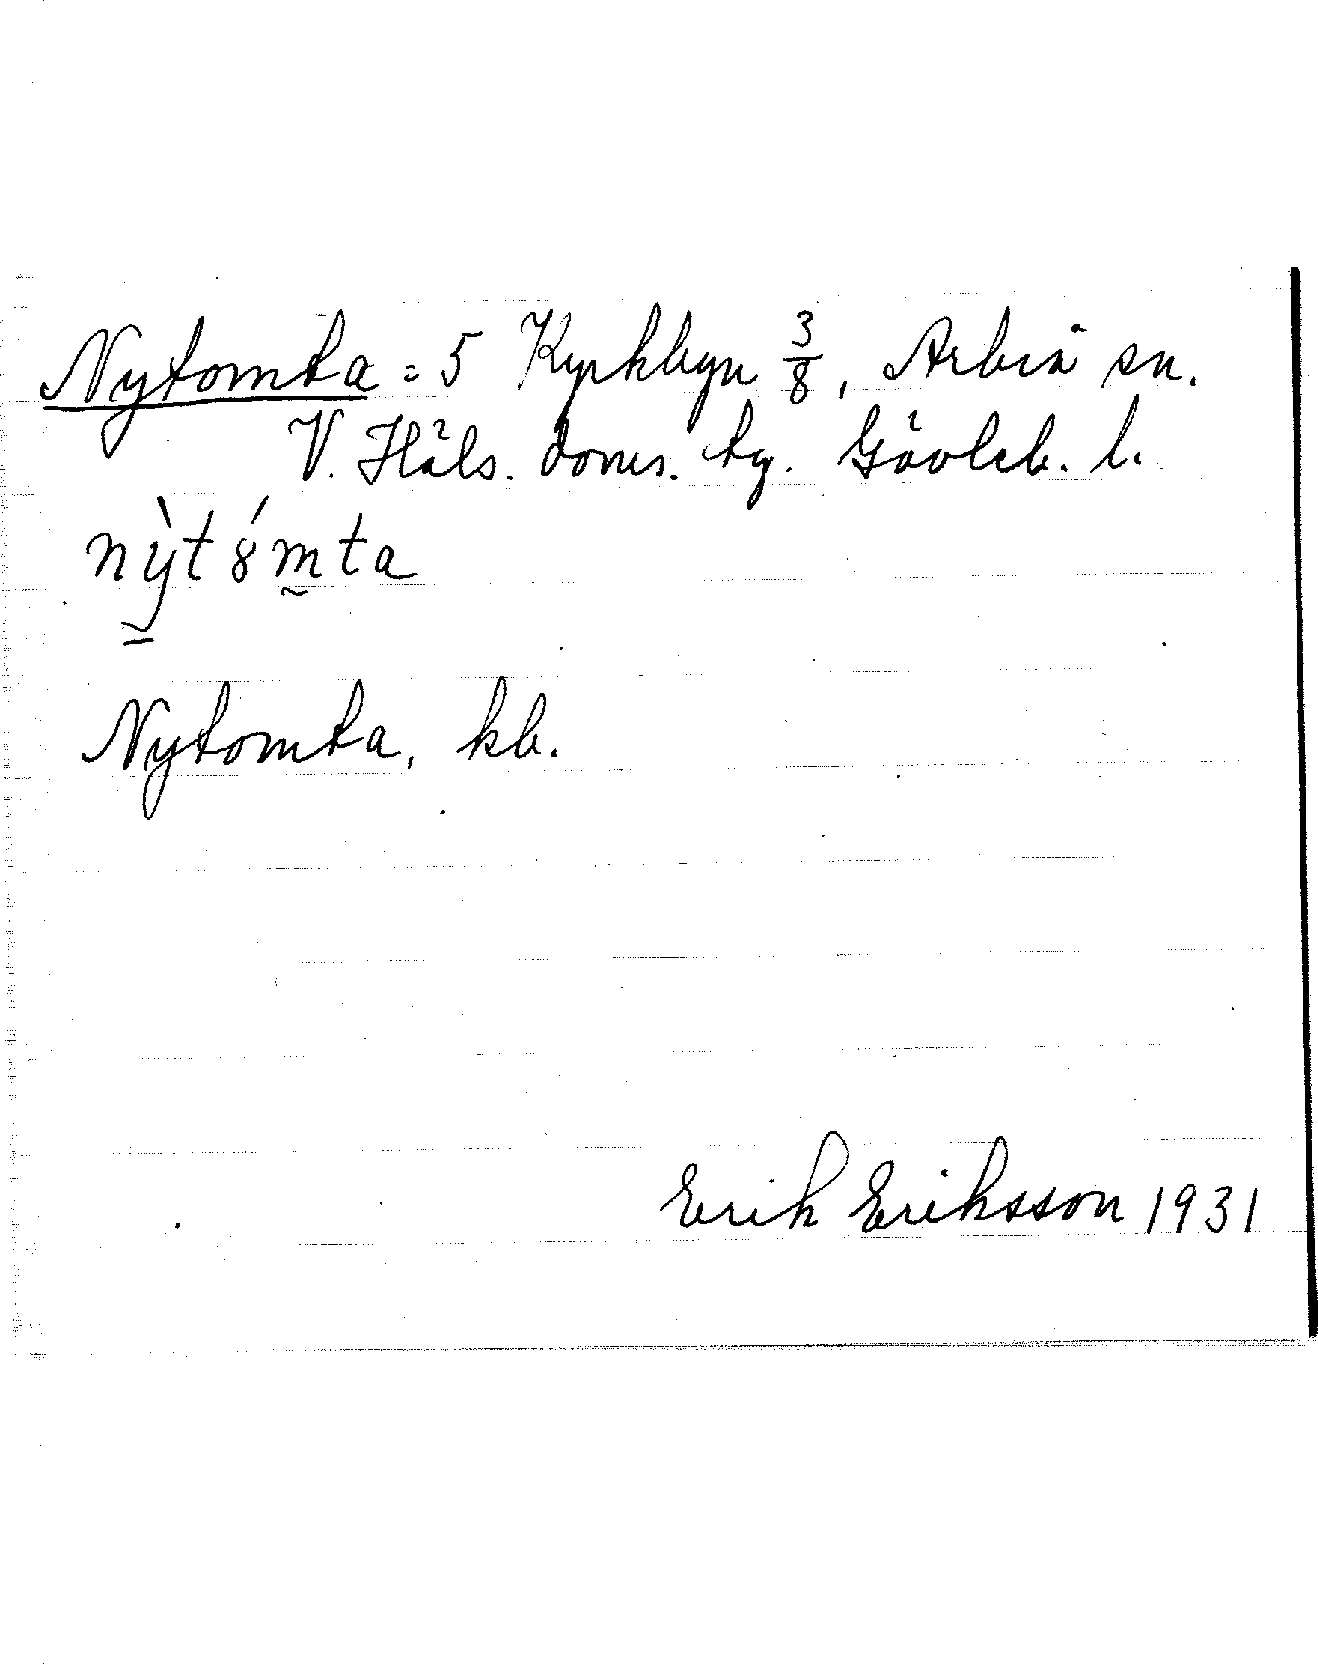 Nytomta = 5 Kyrkbyn 3/8, Arbrå sn.
V. Häls. doms. tg. Gävleb. l.
nỳt8́m̰ta
Nytomta, kb.
Erik Eriksson 1931